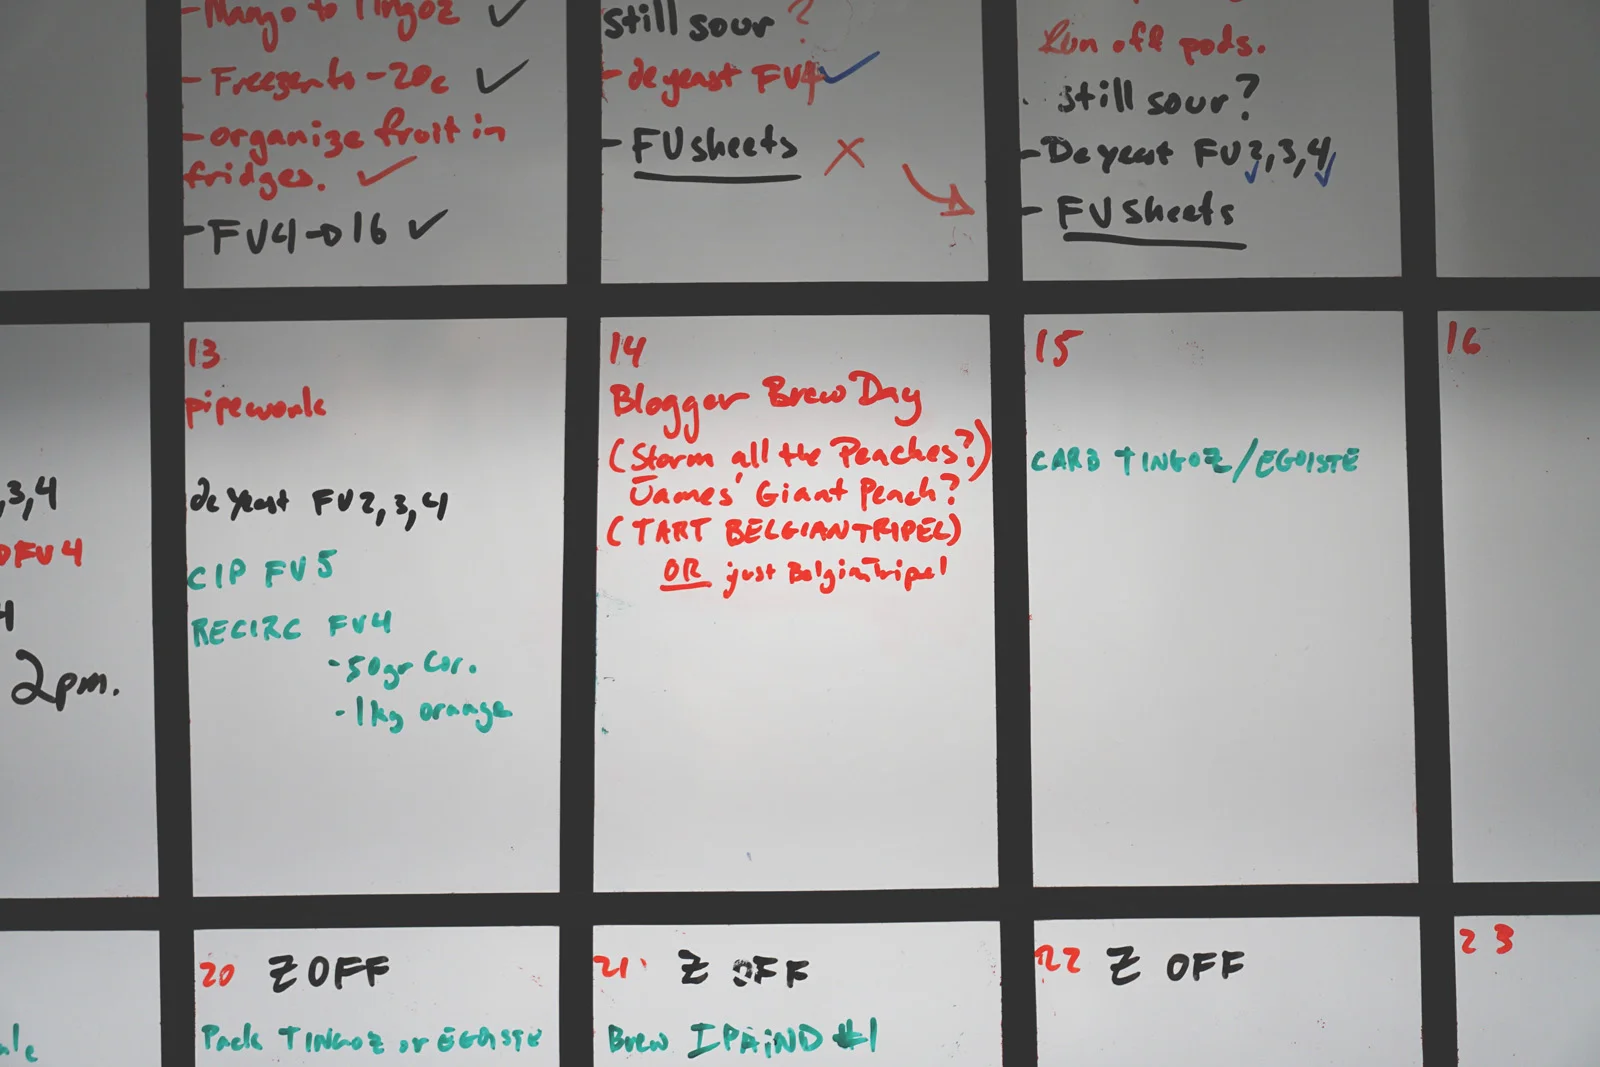 -Mango to Tingoz ✓
-Freezer to -20c ✓
-organize fruit in
fridges. ✓
-FV4→16 ✓
still sour?
-deyeast FV4 ✓
-FV sheets X
Run off pods.
still sour?
-Deyeast FV2,3,4
-FV sheets
,3,4
FV4
4
2pm.
13
pipework
deyeast FV2,3,4
CIP FV5
RECIRC FV4
-50gr Cor.
-1kg orange
14
Blogger Brew Day
(Storm all the Peaches?)
James' Giant Peach?
(TART BELGIAN TRIPEL)
OR just Belgian Tripel
15
CARB TINGOZ/EGOISTE
16
20 Z OFF
Pack TINGOZ or EGOISTE
21 Z OFF
Brew IPAiND #1
22 Z OFF
23